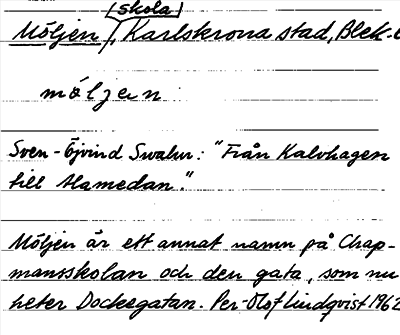 (skola)
Möljen, Karlskrona stad, Blek.
möljen
Sven-Öjvind Swahn: "Från Kalvhagen
till Hamedan."
Möljen är ett annat namn på Chap-
mansskolan och den gata, som nu
heter Dockegatan. Per-Olof Lindqvist 1962